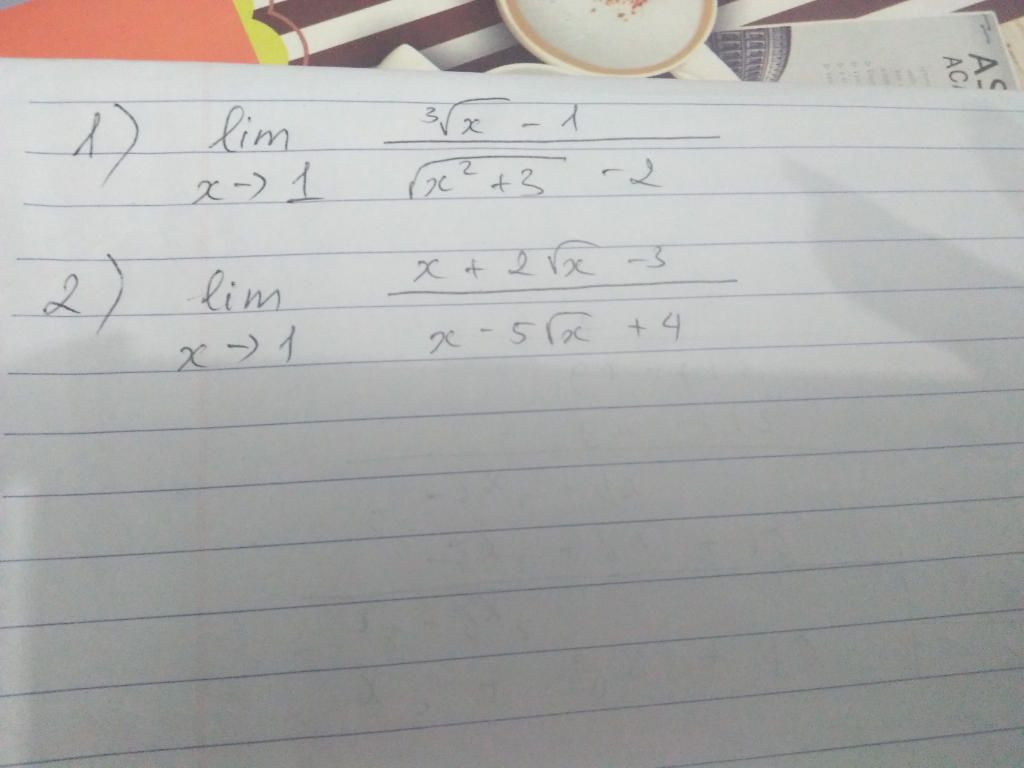 1) lim ∛x - 1
x → 1 √x² + 3 - 2
2) lim x + 2√x - 3
x → 1 x - 5√x + 4
AS
AC